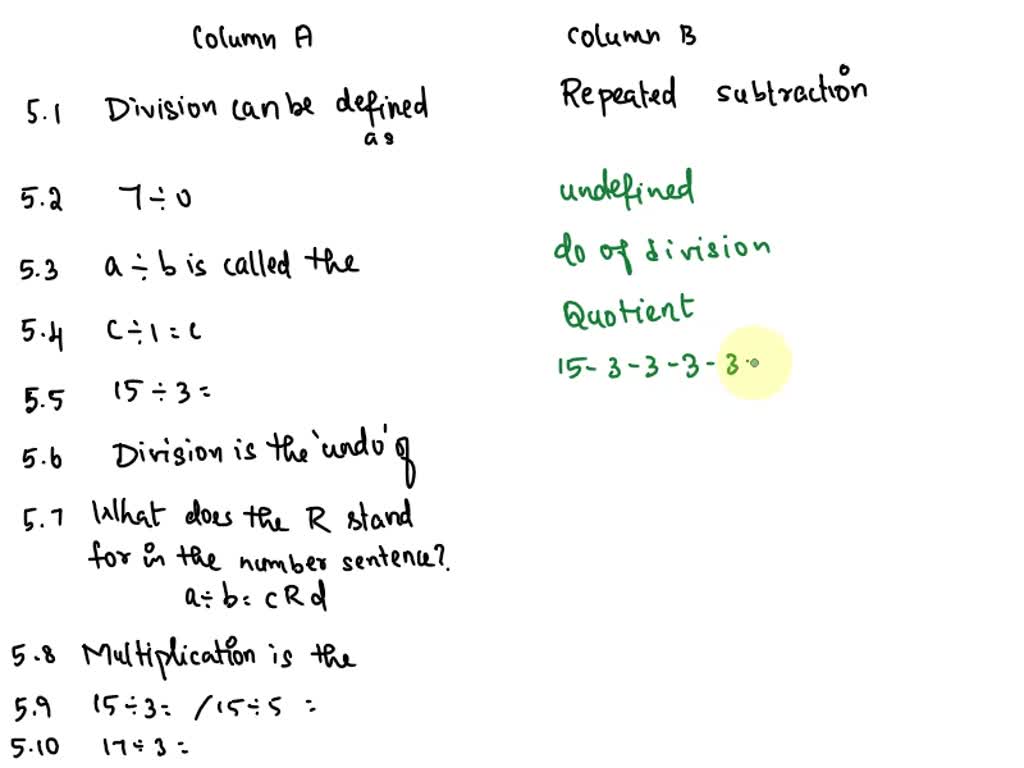 Column A
column B
5.1 Division can be defined as
Repeated subtraction
5.2 7 ÷ 0
undefined
5.3 a ÷ b is called the
do of division
5.4 c ÷ 1 = c
Quotient
5.5 15 ÷ 3 =
15 - 3 - 3 - 3 - 3 -
5.6 Division is the 'undo' of
5.7 What does the R stand
for in the number sentence?.
a ÷ b = c R d
5.8 Multiplication is the
5.9 15 ÷ 3 = / 15 ÷ 5 =
5.10 17 ÷ 3 =